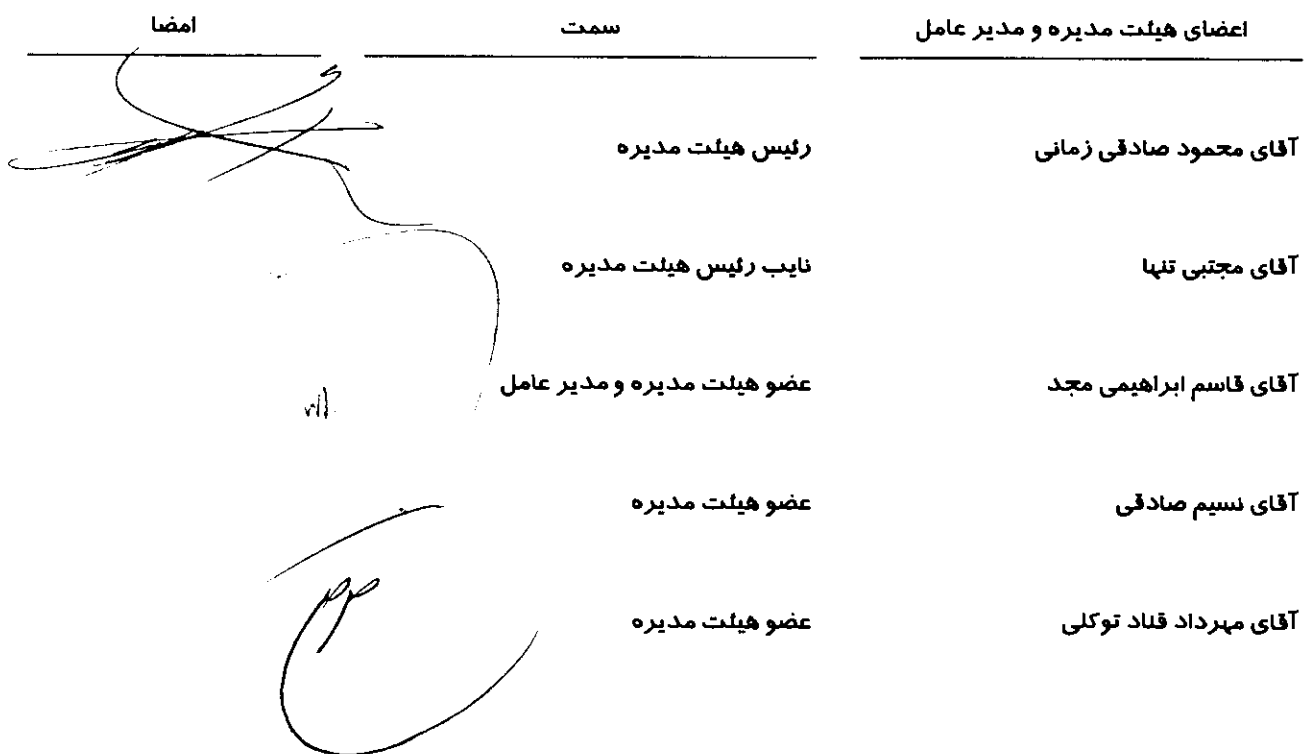 اعضای هیئت مدیره و مدیر عامل سمت امضا
آقای محمود صادقی زمانی رئیس هیئت مدیره
آقای مجتبی تنها نایب رئیس هیئت مدیره
آقای قاسم ابراهیمی مجد عضو هیئت مدیره و مدیر عامل
آقای نسیم صادقی عضو هیئت مدیره
آقای مهرداد قناد توکلی عضو هیئت مدیره